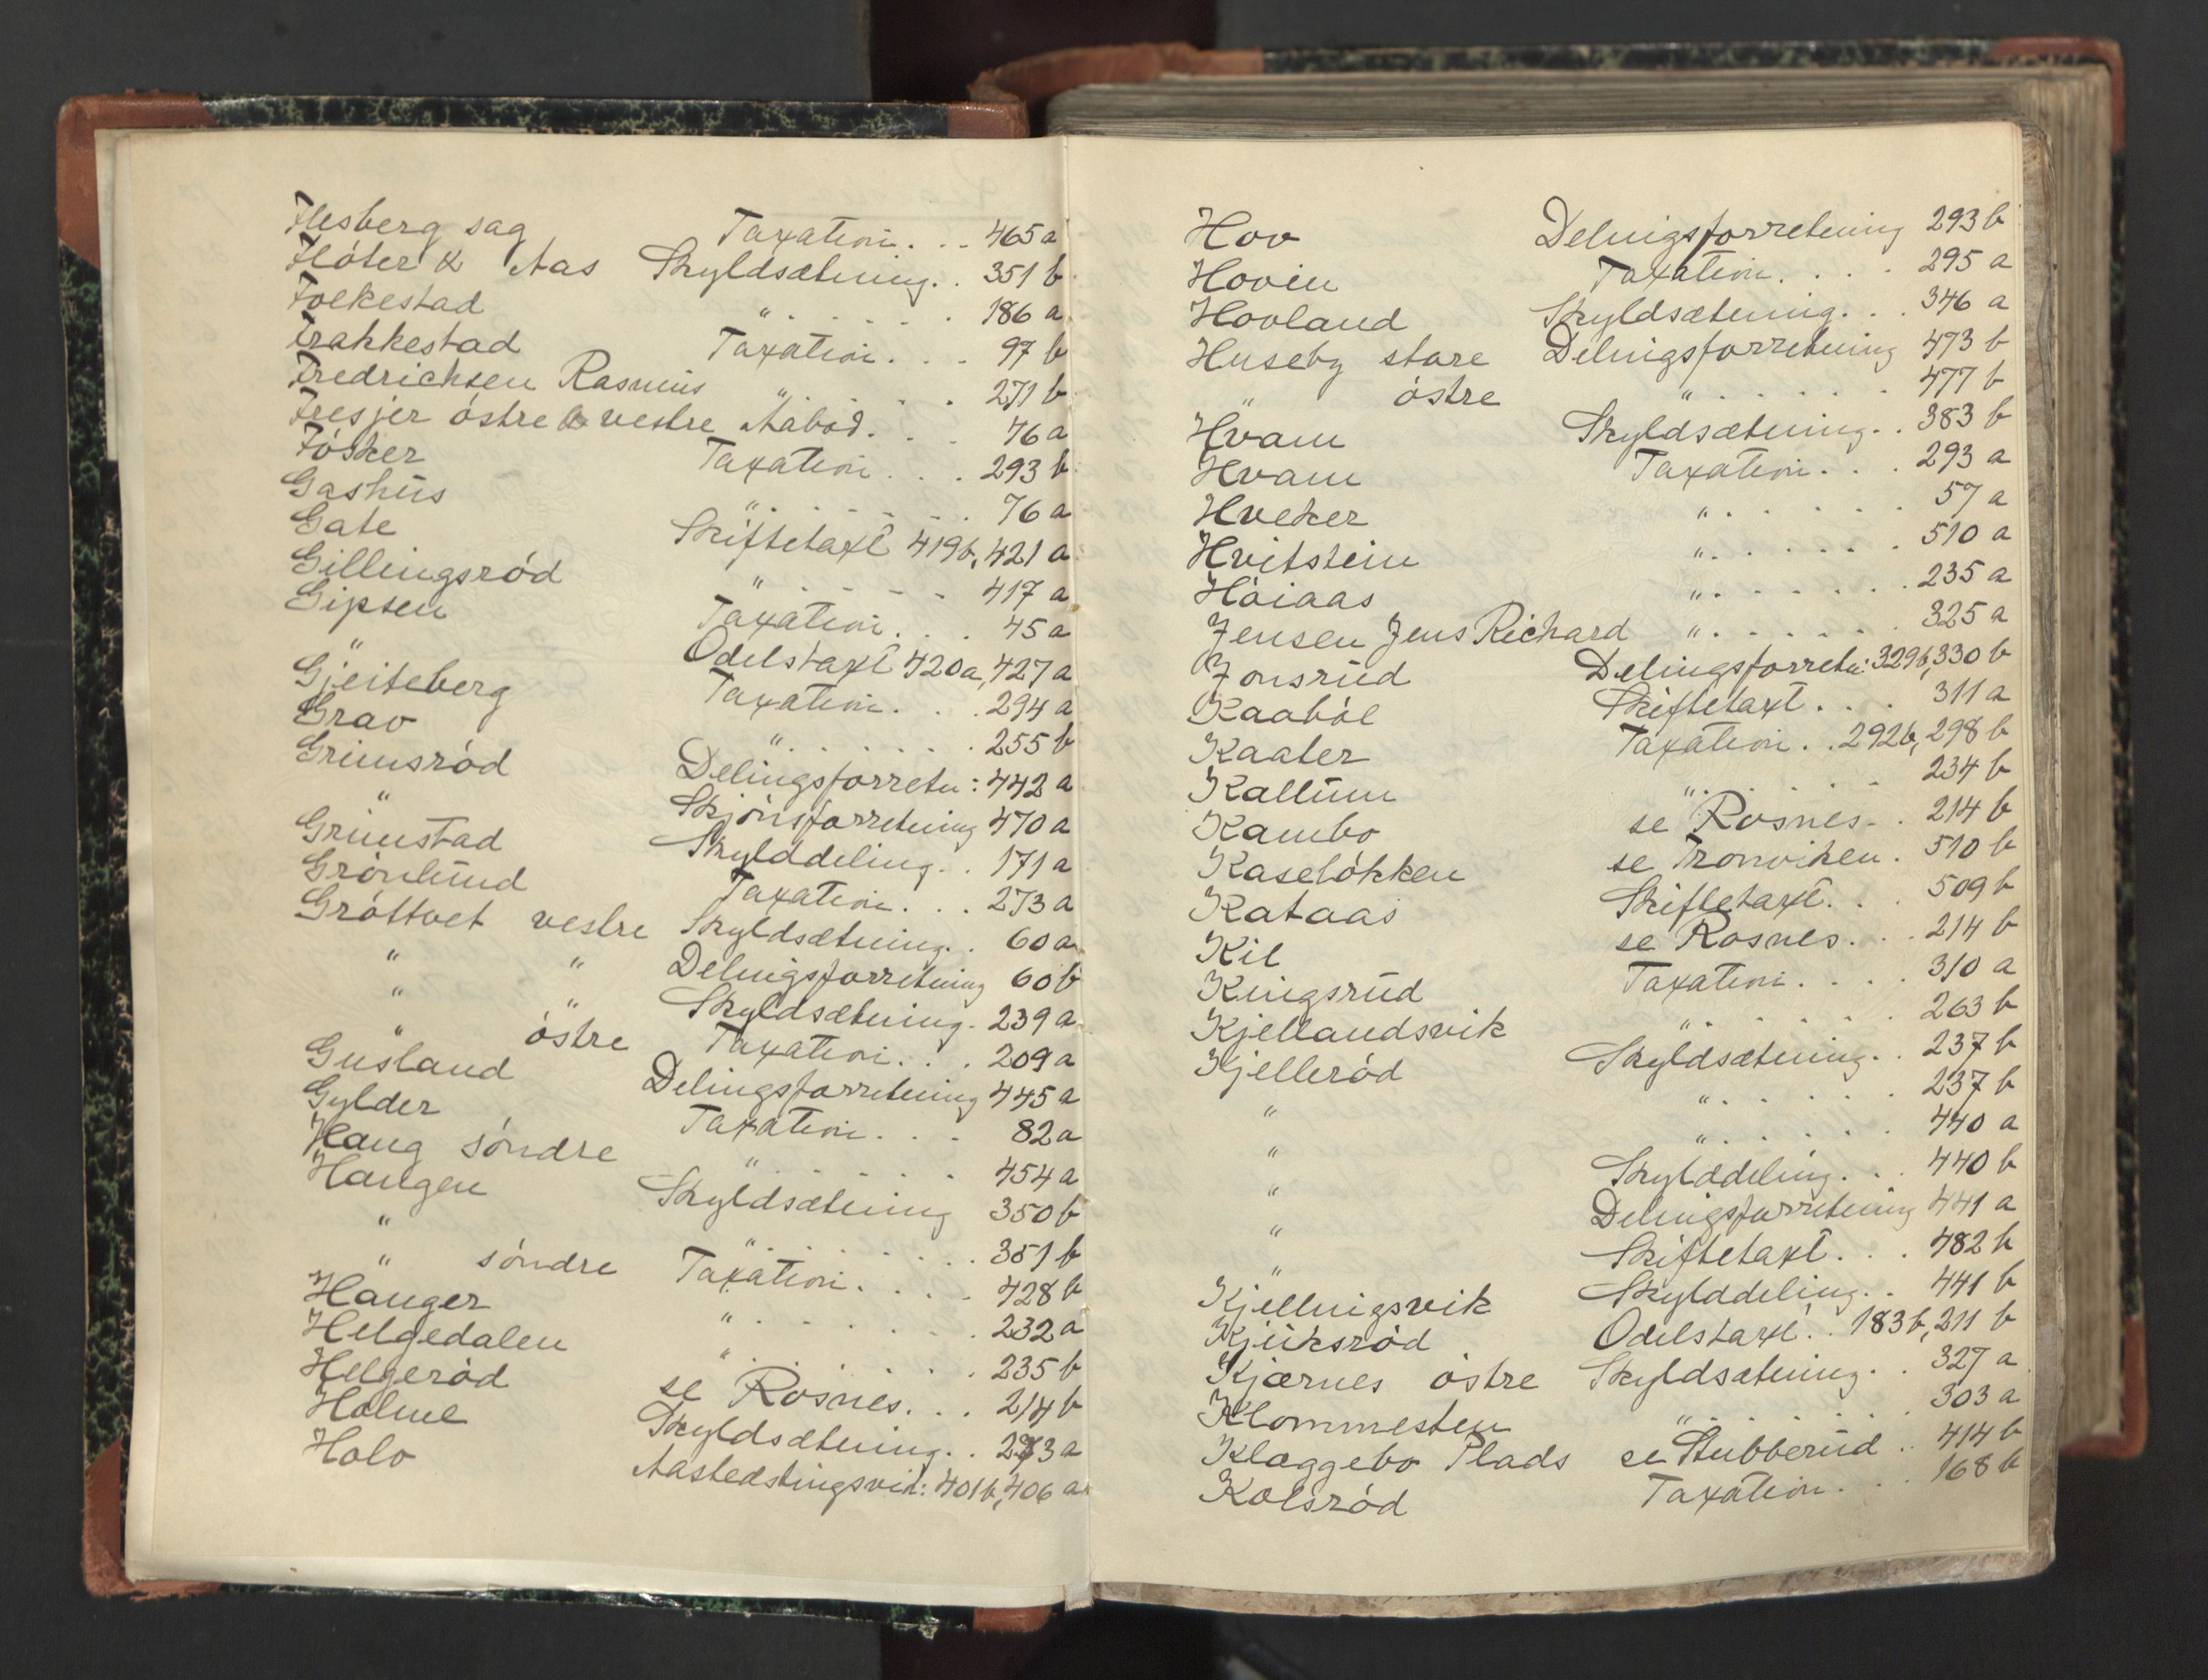 Flesberg sag Taxation. . . 465 a
Flöter & Aas Skyldsætning. . 351 b
Folkestad " . . . . . 186 a
Frakkestad Taxation. . . 97 b
Fredrichsen Rasmus " . . . . 271 b
Fresjer östre & vestre Aabod. . . 76 a
Fösker Taxation . . . 293 b
Gashus " . . . . . . 76 a
Gate Skiftetaxt 419 b, 421 a
Gillingsröd " . . . . . . 417 a
Gipsen Taxation. . . 45 a
" Odelstaxt 420 a, 427 a
Gjeiteberg Taxation. . . 294 a
Grav " . . . . . . 255 b
Grimsröd Delingsforretn: 442 a
" Skjönsforretning 470 a
Grimstad Skylddeling. . 171 a
Grönlund Taxation. . . 273 a
Gröttvet vestre Skyldsætning. . 60 a
" " Delingsforretning 60 b
" " Skyldsætning. 239 a
" östre Taxation. . . 209 a
Gusland Delingsforretning 445 a
Gylder Taxation. . . 82 a
Haug söndre " . . . . . . 454 a
Haugen Skyldsætning 350 b
" " . . . . . . 351 b
" söndre Taxation. . . . 428 b
Hauger " . . . . . . 232 a
Helgedalen " . . . . . . 235 b
Helgeröd se Rosnes. . . 214 b
Holme Skyldsætning. . 273 a
Holo Aastedstingsvid: 401 b, 406 a
Hov Delingsforretning 293 b
Hovin Taxation. . . . 295 a
Hovland Skyldsætning. . . 346 a
Huseby store Delingsforretning 473 b
" östre " . . . . . 477 b
Hvam Skyldsætning. . 383 b
Hvam Taxation. . . 293 a
Hveker " . . . . . . 57 a
Hvitstein " . . . . . . 510 a
Höiaas " . . . . . . 235 a
Jensen Jens Richard " . . . . . . 325 a
Jonsrud Delingsforretn: 329 b, 330 b
Kaaböl Skiftetaxt . . . 311 a
Kaater Taxation . . 292 b, 298 b
Kallum " . . . . . 234 b
Kambo se Rosnes. . 214 b
Kaselökken se Tronviken. 510 b
Kataas Skiftetaxt. . . 509 b
Kil se Rosnes. . . 214 b
Kingsrud Taxation. . . . 310 a
Kjellandsvik " . . . . . . 263 b
Kjelleröd Skyldsætning. . 237 b
" " . . . . . . 237 b
" " . . . . . . 440 a
" Skylddeling. . . 440 b
" Delingsforretning 441 a
" Skiftetaxt. . . 482 b
Kjellingsvik Skylddeling. . 441 b
Kjuksröd Odelstaxt. . 183 b, 211 b
Kjærnes östre Skyldsætning. . 327 a
Klommesten " . . . . . . 303 a
Klæggebo Plads se Stubberud . . 414 b
Kolsröd Taxation. . . 168 b